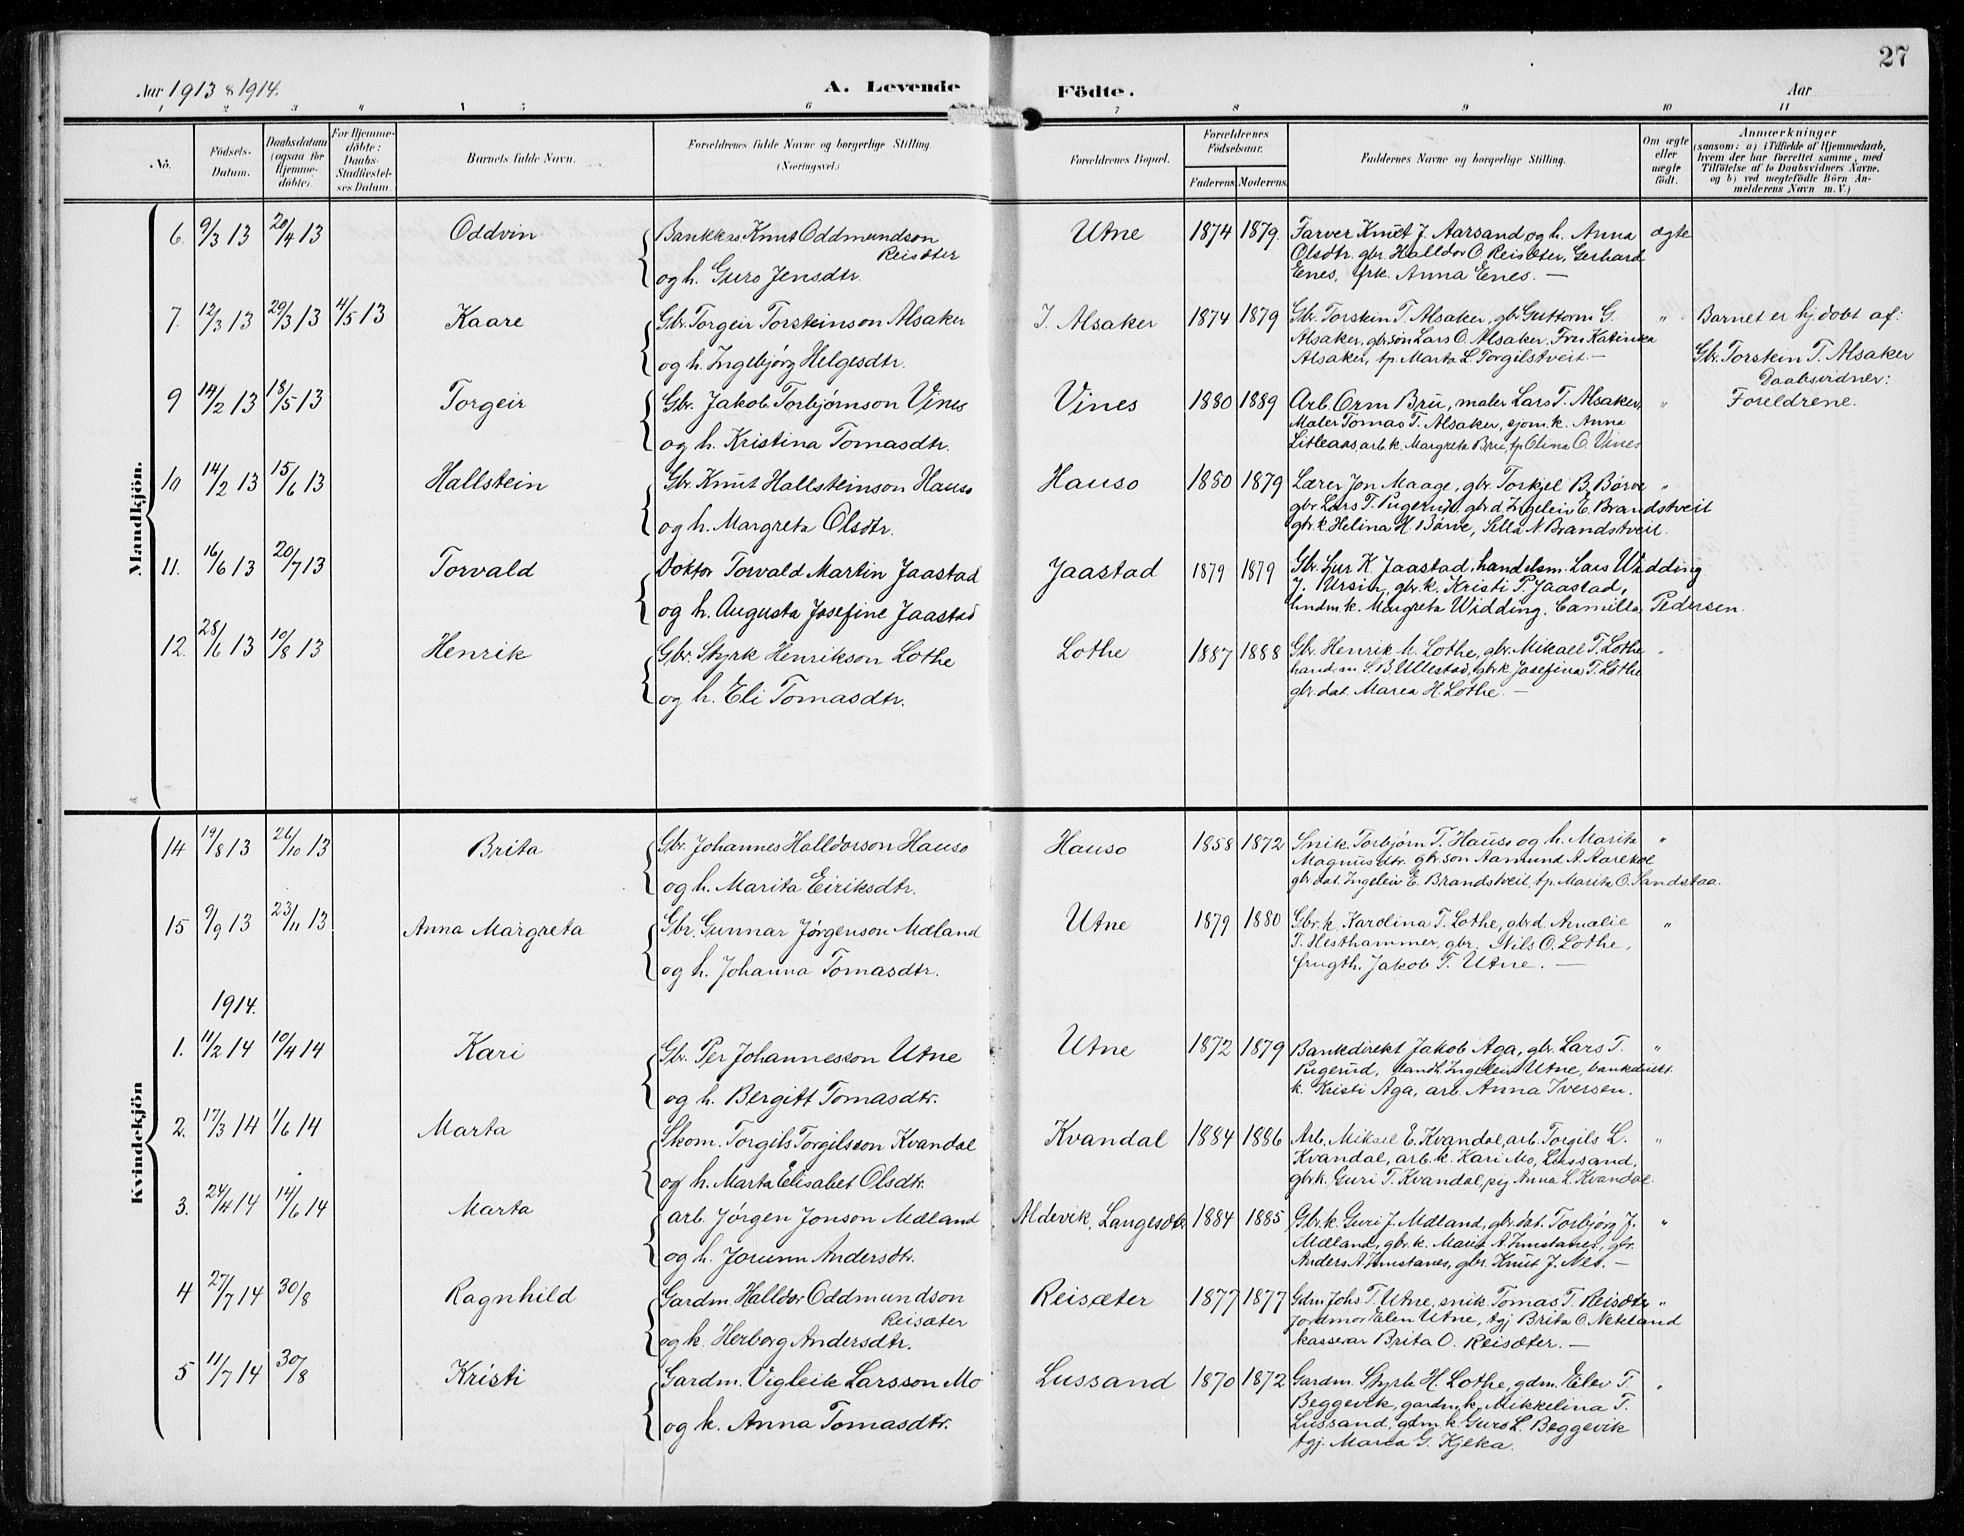 27
Aar 1913 & 1914.
A. Levende
Födte.
Aar
1 2 3 " 4 5 6 7 8 9 10 11
No.
Födsels-Datum.
Daabsdatum (ogsaa for Hjemme-döbte).
For Hjemme-döbte: Daabs-Stadfæstel-ses Datum.
Barnets fulde Navn.
Forældrenes fulde Navne og borgerlige Stilling. (Næringsvei.)
Forældrenes Bopæl.
Forældrenes Födselsaar.
Faderens. Moderens.
Faddernes Navne og borgerlige Stilling.
Om ægte eller uægte födt.
Anmærkninger
(saasom: a) i Tilfælde af Hjemmedaab, hvem der har forrettet samme, med Tilföielse af to Daabsvidners Navne, og b) ved uægtefödte Börn An-melderens Navn m. V.)
Mandkjön.
6. 9/3 13 20/4 13 Oddvin Bankkas. Knut Oddmundson Reisæter Utne 1874 1879. Farver Knut J. Aarsand og h. Anna ægte
og h. Guro Jensdtr. Olsdtr. gbr. Halldor O. Reisæter, Gerhard
Enes, frk. Anna Enes. —
7. 12/3 13 20/3 13 4/5 13 Kaare Gbr. Torgeir Torsteinson Alsaker J. Alsaker 1874 1879 Gbr. Torstein T. Alsaker, gbr Guttorm G. " Barnet er hj.døbt af:
Alsaker, gbr.søn Lars O. Alsaker, Fru Katinka
og h. Ingebjørg Helgesdtr. Alsaker, tp. Marta L. Torgilstveit — Gbr. Torstein T. Alsaker
Daabsvidner:
9 14/2 13 18/5 13 Torgeir Gbr. Jakob Torbjørnson Vines Vines 1880 1889 Arb. Orm Bru, maler Lars T. Alsaker, " Foreldrene.
Maler Tomas T. Alsaker, sjom.k. Anna
og h. Kristina Tomasdtr. Litleaas, arb.k. Margreta Bru, tp Olina O. Vines
10 14/2 13 15/6 13 Hallstein Gbr. Knut Hallsteinson Hauso Hauso 1880 1879 Lærer Jon Maage, gbr. Torkjel B. Børve "
gbr. Lars T. Pugerud, gbr.d Ingeleiv E. Brandstveit
og h. Margreta Olsdtr. gbr.k Helina H. Børve, Sella N Brandstveit.
11. 16/6 13 20/7 13 Torvald Doktor Torvald Martin Jaastad Jaastad 1879 1879 Gbr. Sjur K Jaastad, handelsm. Lars Widding
J. Ursin, gbr.k. Kristi P. Jaastad,
og h. Augusta Josefine Jaastad hndm.k. Margreta Widding, Camilla Pedersen.
12. 28/6 13 10/8 13 Henrik Gbr. Styrk Henrikson Lothe Lothe 1887 1888 Gbr. Henrik M. Lothe, gbr. Mikael T. Lothe "
hand.m S. B. Ullestad, gbr.k. Josefina T. Lothe
og h. Eli Tomasdtr. gbr.dat. Marea H. Lothe. —
Kvindekjön
14 19/8 13 26/10 13 Brita Gbr. Johannes Halldorson Hauso Hauso 1858 1872 Snik. Torbjørn T. Hauso og h. Marita "
Magnusdtr. gbr.son Aamund A. Aarekol
og h. Marita Eiriksdtr. gbr.dat. Ingeleiv E. Brandstveit, tp. Marita O. Sandstaa.
15 9/9 13 23/11 13 Anna Margreta Gbr. Gunnar Jørgenson Mæland Utne 1879 1880 Gbr.k. Karolina T. Lothe, gbr.d. Amalie "
T. Hesthammer, gbr. Nils O. Lothe,
og h. Johanna Tomasdtr. frugth. Jakob T. Utne. —
1914.
1. 11/2 14 10/4 14 Kari Gbr. Per Johannesson Utne Utne 1872 1879 Bankdirekt Jakob Aga, gbr. Lars T. "
Pugerud, landh. Ingeleiv Utne, bankdirekt.
og h. Bergitt Tomasdtr. k. Kristi Aga, arb. Anna Iversen.
2. 17/3 14 1/6 14 Marta Skom. Torgils Torgilsson Kvandal Kvandal 1884 1886 Arb. Mikael E. Kvandal, arb. Torgils L. "
Kvandal, arb.k. Kari Mo, Lussand,
og h. Marta Elisabet Olsdtr. gbr.k. Guri T. Kvandal, pig Anna L. Kvandal.
3. 24/4 14 14/6 14 Marta arb. Jørgen Jonson Mæland Aldevik, Langesætr 1884 1885 Gbr.k. Guri J. Mæland, gbr.dat. Torbjørg J. "
Mæland, gbr.k. Marita A. Instanes, gbr.
og h. Jorunn Andersdtr. Anders A. Instanes, gbr. Knut J. Nes. —
4 27/7 14 30/8 Ragnhild Gardm. Halldor Oddmundson Reisæter Reisæter 1877 1877 Gdm Johs T. Utne, snik. Tomas T. Reisætr "
jordmor Elen Utne, tgj Brita O. Neteland
og k. Herborg Andersdtr. kasserar Brita O. Reisæter. —
5 11/7 14 30/8 Kristi Gardm. Vigleik Larsson Mo Lussand 1870 1872 Gardm. Styrk H. Lothe, gdm. Elev T. "
Beggevik, gardm.k. Mikkelina T.
og k. Anna Tomasdtr. Lussand, gdm k. Guro L. Beggevik
tgj. Marea G. Kjeka.